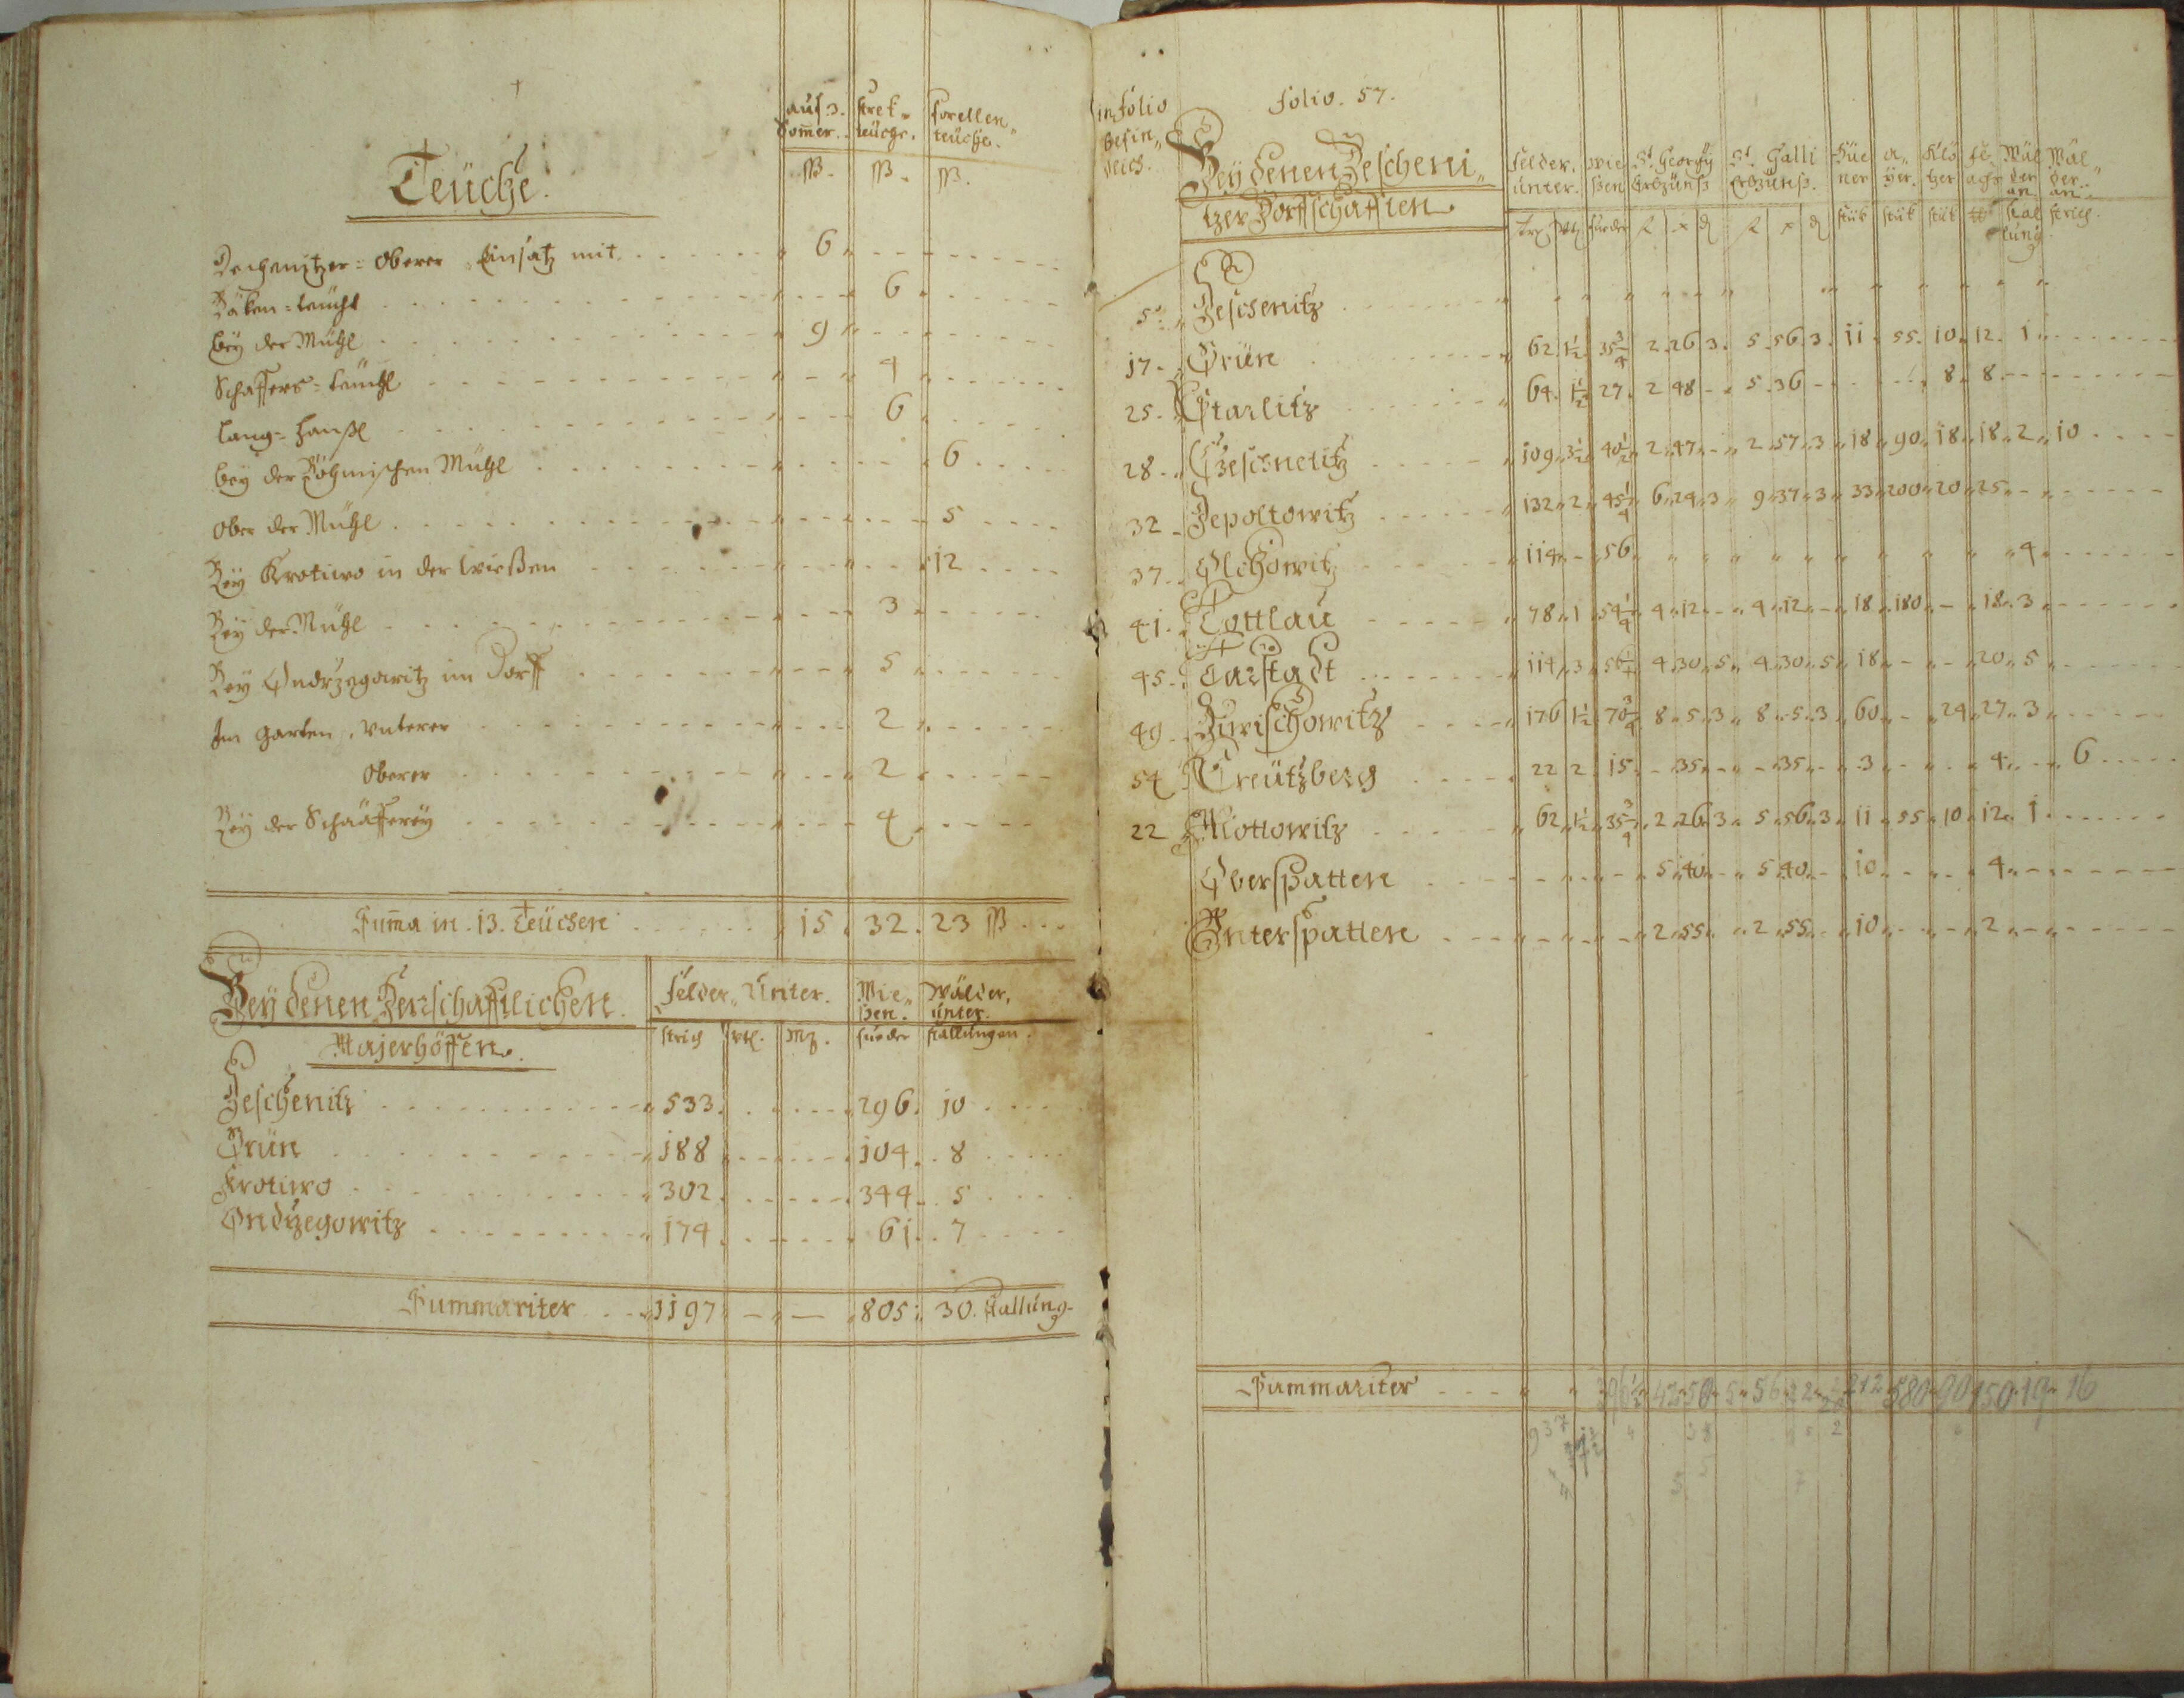 Teüche.
auf 3. Sommer. Strek- teüche. Forellen- teüche.
ß. ß. ß.
Oberer Einsatz mit 6
6
bey der Mühl 9
Schaffers-teücht 4
Lang-Hanßl 6
bey der Böhmischen Mühl 6
Ober der Mühl 5
Bey Krotiwo in der Wießen 12
Bey der Mühl 3
Bey Ondrzegowitz im Dorff 5
Im Garten, Unterer 2
Oberer 2
Bey der Schäafferey 4
Summa in 13. Teüchen 15. 32. 23 ß
Bey denen Herrschafftlichen Majerhöffen.
Felder, Unter. Wie- ßen. Wälder, unter.
Strich Vrtl. Mz. Fueder Stallungen.
Zeschenitz 533. 296. 10
Grün 188 104. 8
Krotiwo 302 344. 5
Ondrzegowitz 174 61. 7
Summariter 1197 — — 805 30. Stallung
in Folio befin- dlich.
Folio. 57.
Bey denen Zescheni- tzer Dorffschafften
Felder, unter. Wie ßen St. Georgy Erbzünß St. Galli Erbzünß. Hüe ner a- yer. Klö tzer Wäl der an Stal lung Wäl der an Strich.
5 Zeschenitz
17. Grün 62 1½ 35¾ 2 26 3 5 56 3 11 55 10 12 1
25. Starlitz 64 1½ 27 2 48 - 5 36 - 8 8
28. Czeschnetitz 109 3½ 40½ 2 47 - 2 57 3 18 90 18 18 2 10
32 Zepoltowitz 132 2 45¼ 6 24 3 9 37 3 33 200 20 25
37. Olchowitz 114 - 56 4
41. Tottlau 78 1 54¼ 4 12 - 4 12 - 18 180 - 18 3
45. Carstadt 114 3 56¼ 4 30 5 4 30 5 18 - - 20 5
49. Ziwischowitz 176 1½ 70¾ 8 5 3 8 5 3 60 - 24 27 3
54 Creützberg 22 2 15 - 35 - - 35 - 3 - - 4 - 6
22 Miottowitz 62 1½ 35¾ 2 26 3 5 56 3 11 55 10 12 1
Oberspatten 5 40 - 5 40 - 10 4
Unterspatten 2 55 2 55 - 10 2
Summariter 42 50 5 56 212 580 90 150 19 16
937